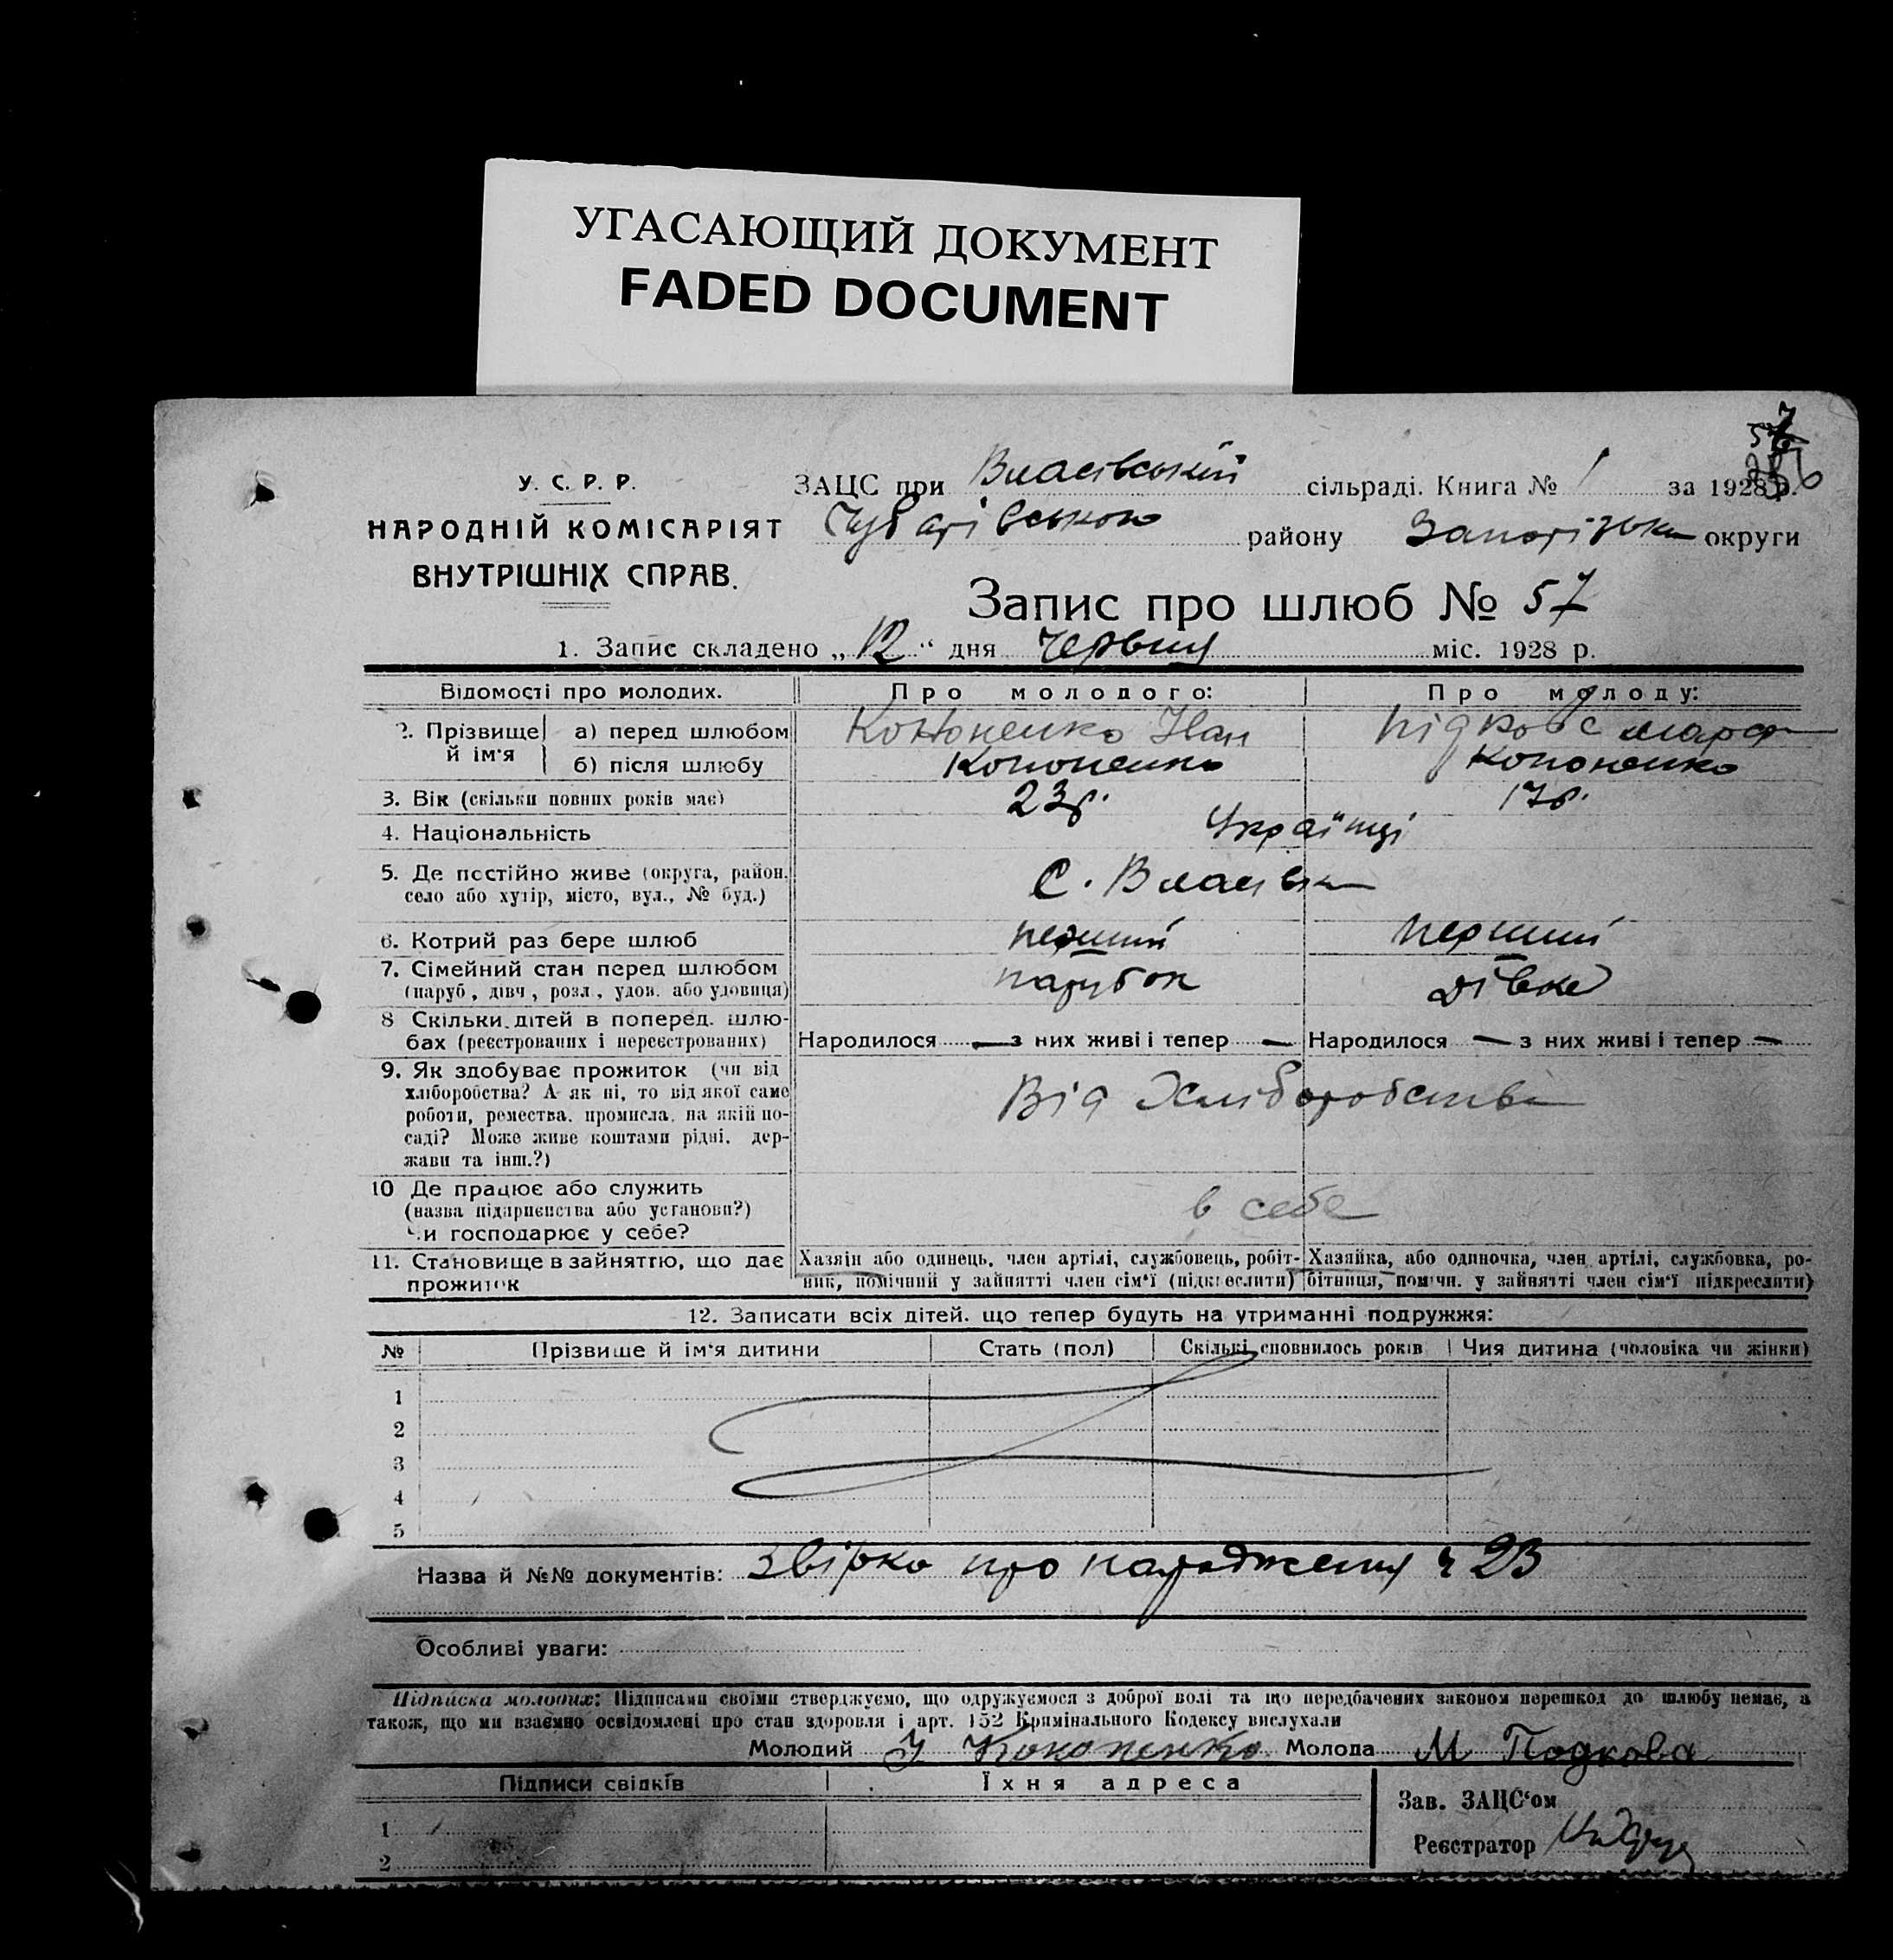 УГАСАЮЩИЙ ДОКУМЕНТ
FADED DOCUMENT
У. С. Р. Р.
НАРОДНІЙ КОМІСАРІЯТ
ВНУТРІШНІХ СПРАВ.
ЗАЦС при Власівській сільраді. Книга № 1 за 1928 р.
Чубарівського району Запорізьк округи
Запис про шлюб № 57
1. Запис складено „12“ дня червня міс. 1928 р.
Відомості про молодих. Про молодого: Про молоду:
2. Прізвище й ім'я а) перед шлюбом Кононенко Іван Підкова Марфа
б) після шлюбу Кононенко Кононенко
3. Вік (скільки повних років має) 23 р. 17 р.
4. Національність Українці
5. Де постійно живе (округа, район,
село або хутір, місто, вул., № буд.) С. Власівка
6. Котрий раз бере шлюб перший перший
7. Сімейний стан перед шлюбом
(паруб, дівч, розл, удов. або удовиця) парубок дівка
8 Скільки дітей в поперед. шлю-
бах (реєстрованих і нереєстрованих) Народилося — з них живі і тепер — Народилося — з них живі і тепер —
9. Як здобуває прожиток (чи від
хліборобства? А як ні, то від якої саме
роботи, ремества, промисла, на якій по-
саді? Може живе коштами рідні, дер-
жави та інш.?) Від Хліборобства
10 Де працює або служить
(назва підприємства або установи?)
Чи господарює у себе? в себе
11. Становище в зайняттю, що дає
прожиток
Хазяін або одинець, член артілі, службовець, робіт-
ник, помічний у зайнятті член сім'ї (підкреслити)
Хазяйка, або одиночка, член артілі, службовка, ро-
бітниця, помічн. у зайнятті член сім'ї підкреслити)
12. Записати всіх дітей, що тепер будуть на утриманні подружжя:
№ Прізвище й ім'я дитини Стать (пол) Скількі сповнилось років Чия дитина (чоловіка чи жінки)
1
2
3
4
5
Назва й №№ документів: звірка про народження ч 23
Особливі уваги:
Підписка молодих: Підписами своїми стверджуємо, що одружуємося з доброї волі та що передбачених законом перешкод до шлюбу немає, а
також, що ми взаємно освідомлені про стан здоровля і арт. 152 Кримінального Кодексу вислухали
Молодий І Кононенко Молода М Подкова
Підписи свідків Їхня адреса
Зав. ЗАЦС'ом
1
Реєстратор
2